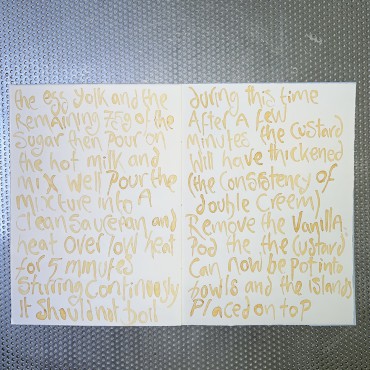 the egg yolk and the
Remaining 75g of the
Sugar then pour on
the hot milk and
mix well Pour the
mixture into A
Clean Saucepan and
heat over low heat
for 5 minutes
Stirring Continuously
It Should not boil
during this time
After A few
minutes the Custard
Will have thickened
(the Consistency of
double Creem)
Remove the Vanilla
Pod the the Custard
Can now be Pot into
bowls and the islands
Placed on top